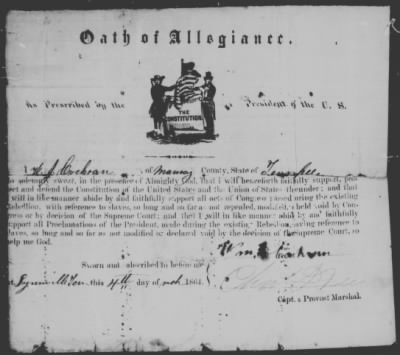 Oath of Allegiance.
As Prescribed by the President of the U. S.
THE
CONSTITUTION
I Cochran of Maury County, State of Tennessee
do solemnly swear, in the presence of Almighty God, that I will henceforth faithfully support, pro-
tect and defend the Constitution of the United States and the Union of States thereunder; and that
I will in like manner abide by and faithfully support all acts of Congress passed during the existing
Rebellion, with reference to slaves, so long and so far as not repealed, modified, or held void by Con-
gress or by decision of the Supreme Court; and that I will in like manner abide by and faithfully
support all Proclamations of the President, made during the existing Rebellion, having reference to
slaves, so long and so far as not modified or declared void by the decision of the Supreme Court, so
help me God.
Wm Cochran
Sworn and subscribed to before me
Lynnville Ten this 4th day of 1864.
Capt. & Provost Marshal.